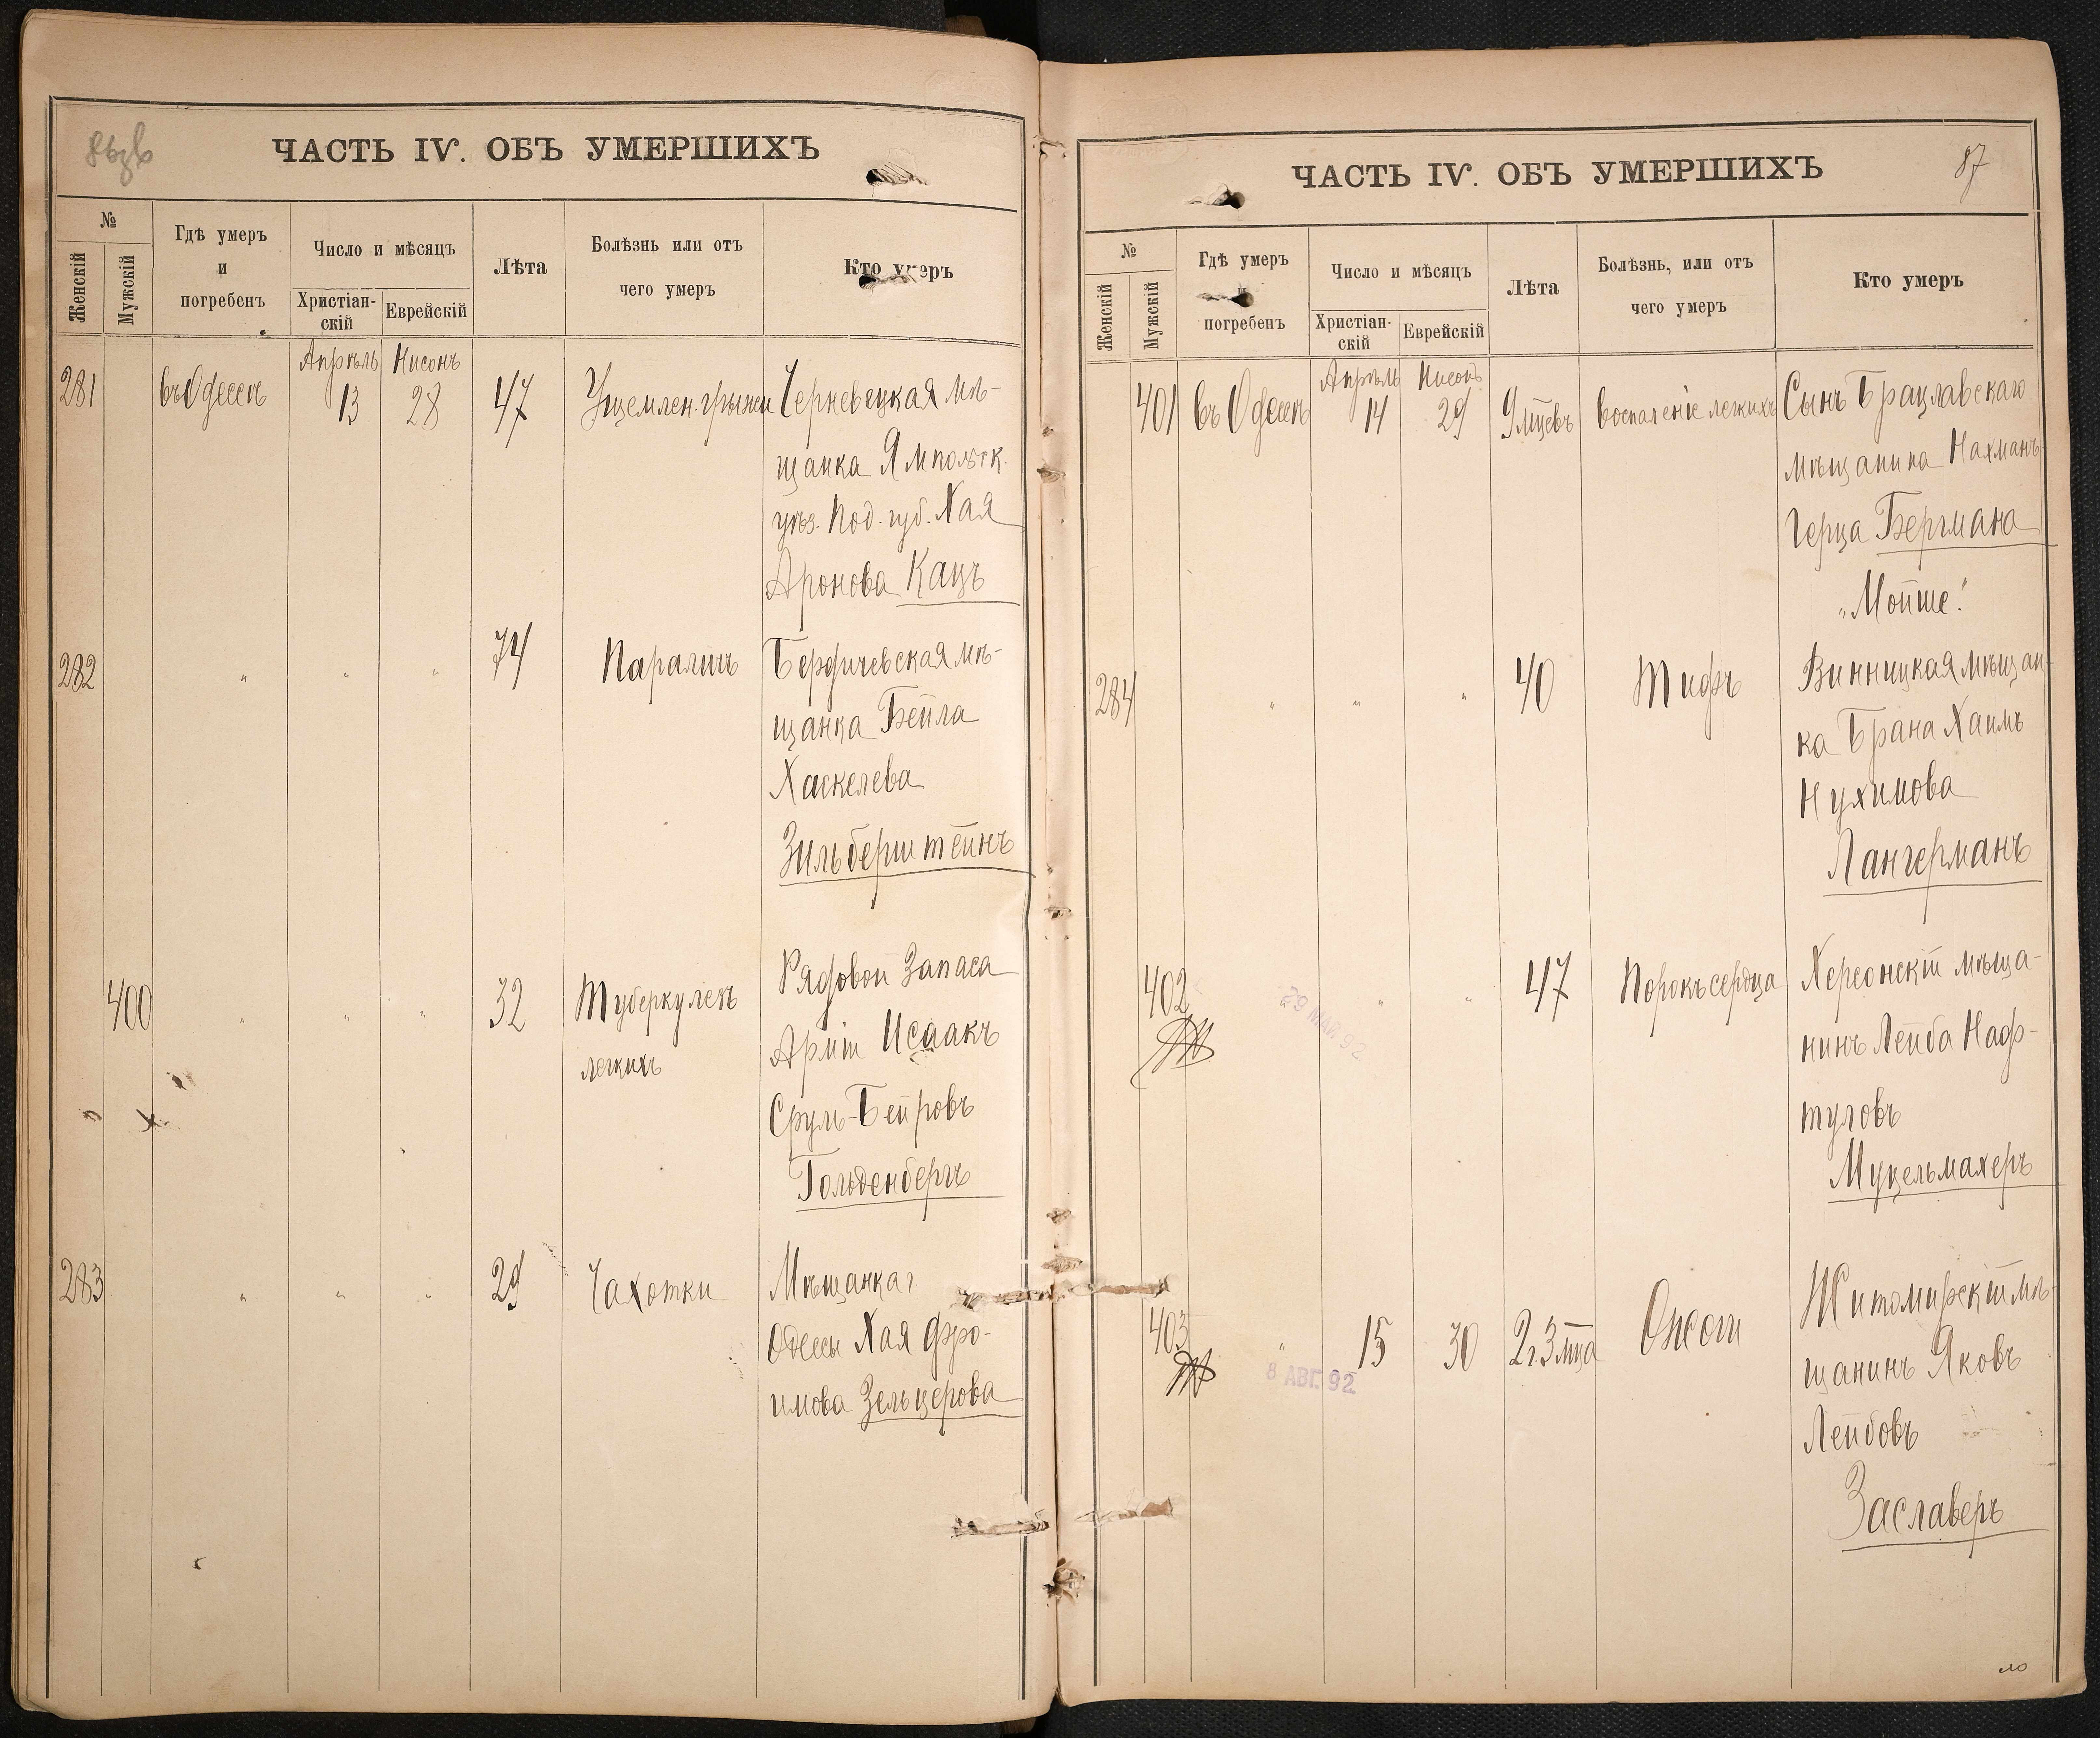 ЧАСТЬ IV. ОБЪ УМЕРШИХЪ
№
Женскій
Мужскій
Гдѣ умеръ
и
погребенъ
Число и мѣсяцъ
Христіан-
скій
Еврейскій
Лѣта
Болѣзнь или отъ
чего умеръ
Кто умеръ
Апрѣль Нисонъ
281 въ Одессѣ 13 28 47 Ущемлен. грыжи Черневецкая мѣ-
щанка Ямпольск.
уѣз. Под. губ. Хая
Аронова Кацъ
282 " " " 74 Параличъ Бердичевская мѣ-
щанка Бейла
Хаскелева
Зильберштейнъ
400 " " " 32 Туберкулезъ Рядовой Запаса
легкихъ Арміи Исаакъ
Сруль-Бейровъ
Гольденбергъ
283 " " " 29 Чахотки Мѣщанка г.
Одессы Хая Фро-
имова Зельцерова
ЧАСТЬ IV. ОБЪ УМЕРШИХЪ
87
№
Женскій
Мужскій
Гдѣ умеръ
и
погребенъ
Число и мѣсяцъ
Христіан-
скій
Еврейскій
Лѣта
Болѣзнь, или отъ
чего умеръ
Кто умеръ
Апрѣль Нисонъ
401 въ Одессѣ 14 29 9 мцевъ Воспаленіе легкихъ Сынъ Брацлавскаго
мѣщанина Нахманъ
Герца Бергмана
"Мойше."
284 " " " 40 Тифъ Винницкая мѣщан-
ка Брана Хаимъ
Нухимова
Лангерманъ
402 " " " 47 Порокъ сердца Херсонскій мѣща-
29 МАЙ 92
нинъ Лейба Наф-
туловъ
Муцельмахеръ
403 " 15 30 2 г 3 мца Ожоги Житомирскій мѣ-
8 АВГ. 92
щанинъ Яковъ
Лейбовъ
Заславеръ